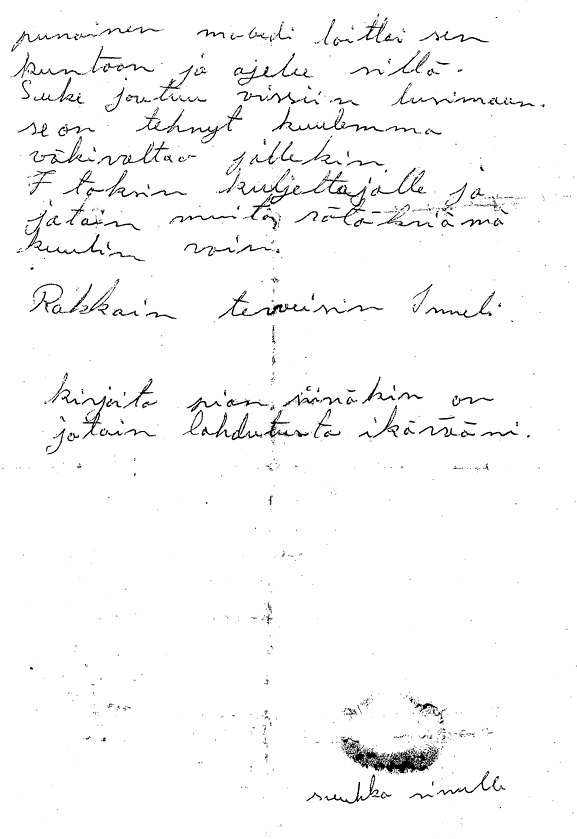 punainen mobedi laittoi sen
kuntoon ja ajelee sillä.
Suke joutuu vissiin lusimaan.
se on tehnyt kuulemma
väkivaltaa jollekin
F taksin kuljettajalle ja
jotain muita rötöksiä mä
kuulin vain.
Rakkain terveisin Inneli
kirjoita pian, siinäkin on
jotain lohdutusta ikävääni.
suukko sinulle